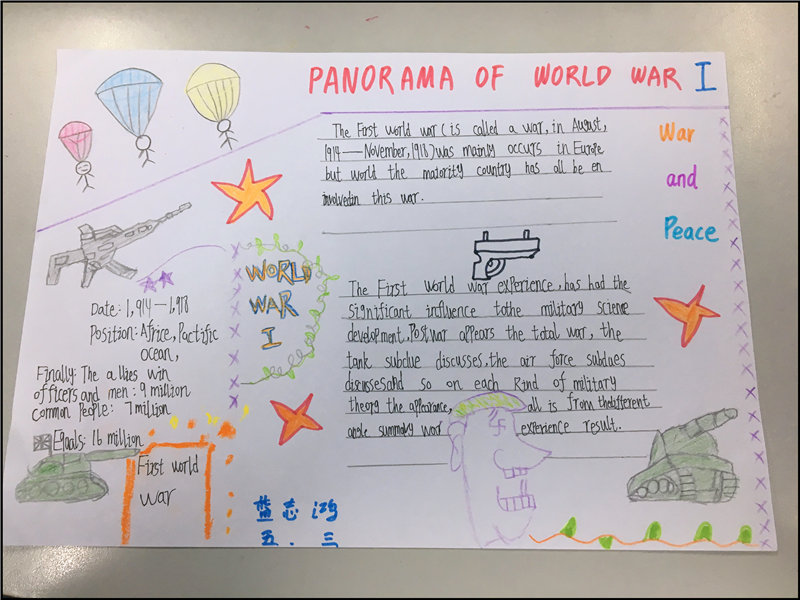 PANORAMA OF WORLD WAR I
The First world war (is called a war, in August,
1914——November, 1918) was mainly occurs in Europe
but world the majority country has all be en
involvedin this war.
War
and
Peace
WORLD
WAR
I
The First world war experience, has had the
significant influence tothe military science
development, Postwar appears the total war, the
tank subdue discusses, the air force subdues
discussesand so on each kind of military
theory the appearance, all is from thedifferent
angle summary war experience result.
Date: 1,914—1,918
Position: Africe, Pactific
ocean,
Finally: The allies win
officers and men: 9 million
Common People: 7 million
Equals: 16 million
First world
war
蓝志
五.三